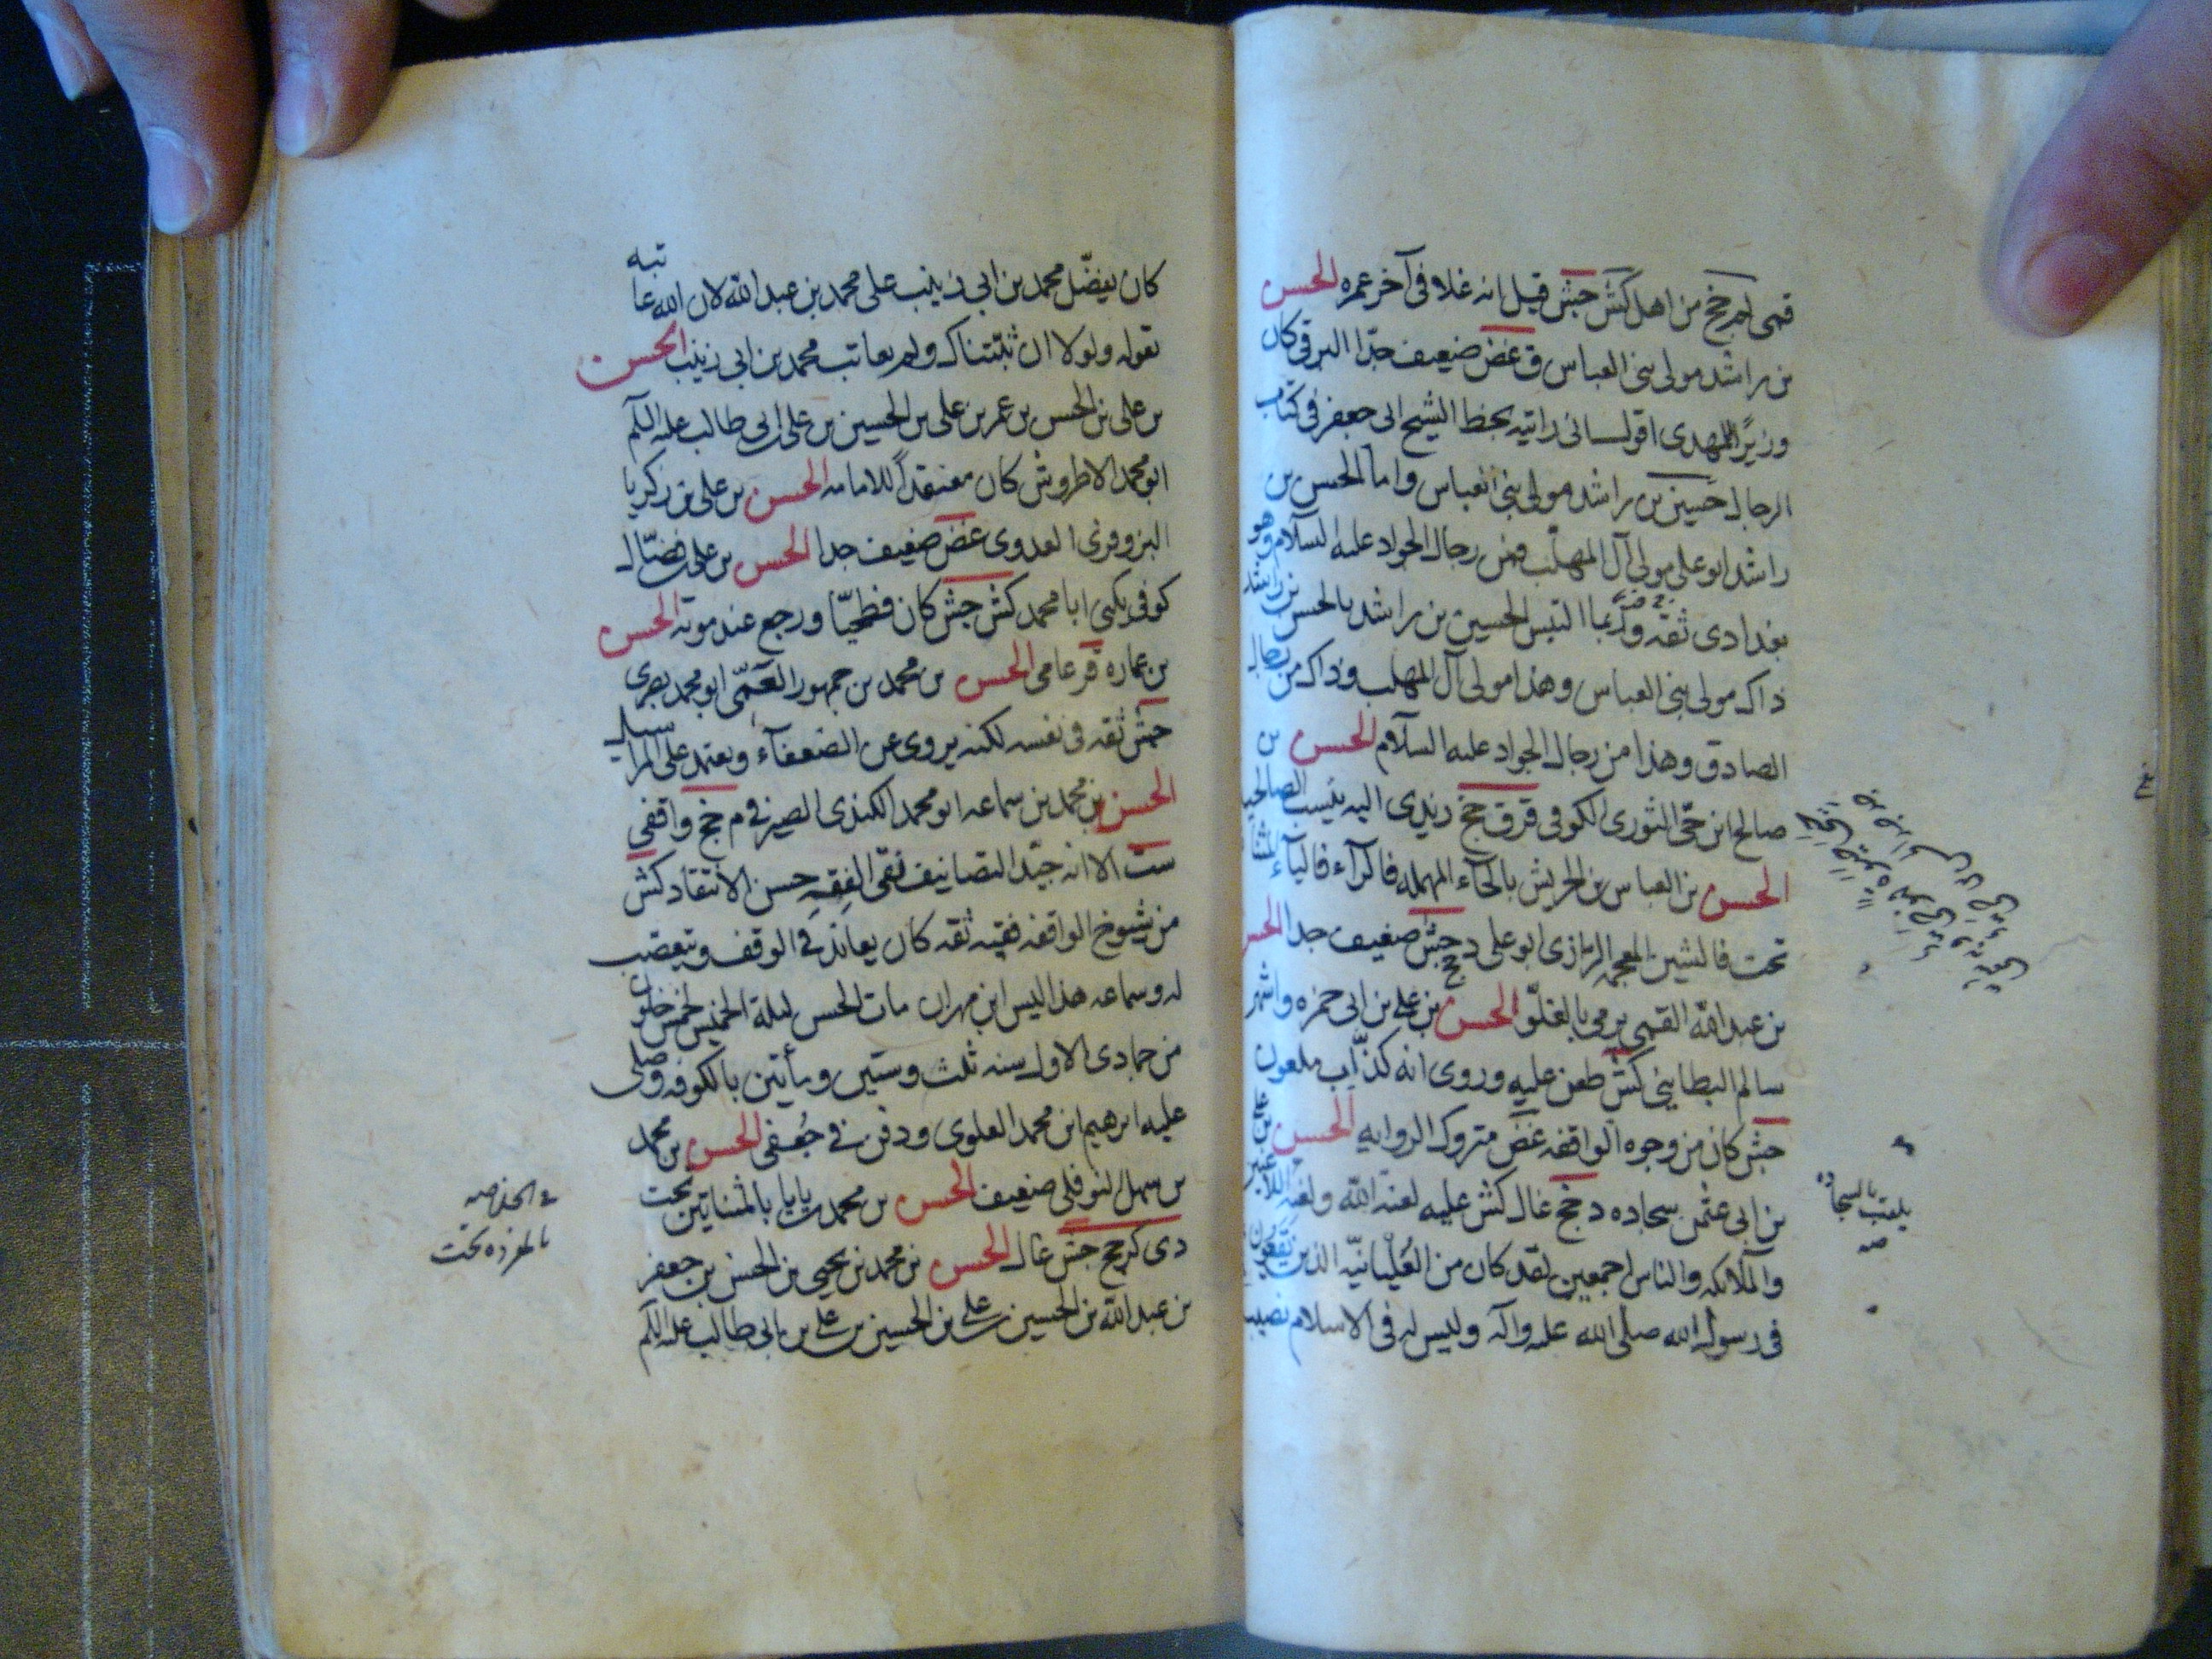 قمى لم جخ من اهل كش جش قيل انه غلا فى آخر عمره الحسن
بن راشد مولى بنى العباس ق غض ضعيف جدّا البرقى كان
وزير المهدى اقول انى رايته بخط الشيخ ابى جعفر فى كتاب
الرجال حسين بن راشد مولى بنى العباس واما الحسن بن
راشد ابو على مولى آل المهلّب فمن رجال الجواد عليه السلام وهو
بغدادى ثقه وربما التبس الحسين بن راشد بالحسن بن راشد
ذاك مولى بنى العباس وهذا مولى آل المهلب وذاك من رجال
الصادق وهذا من رجال الجواد عليه السلام الحسن بن
صالح ابن حىّ الثورى الكوفى قر ق جخ زيدى اليه ينسب الصالحيه
الحسن بن العباس بن الحريش بالحآء المهمله فالرآء فاليآء المثناه
تحت فالشين المعجمه الرازى ابو على د جخ جش ضعيف جدا الحسن
بن عبد الله القمى يرمى بالغلوّ الحسن بن على بن ابى حمزه واشهر
سالم البطاينى كش طعن عليه وروى انه كذّاب ملعون
جش كان من وجوه الواقفه غض متروك الروايه الحسن بن على
بن ابى عثمن سجاده د جخ غال كش عليه لعنة الله ولعنة اللاعنين
والملائكه والناس اجمعين لقد كان من العليائيّه الذين يقعون
فى رسول الله صلى الله عليه وآله وليس له فى الاسلام نصيب
يلقب بالسجاده
صه
كان يفضّل محمد بن ابى زينب على محمد بن عبد الله لان الله عاتبه
بقوله ولولا ان ثبّتناك ولم يعاتب محمد بن ابى زينب الحسن
بن على بن الحسن بن عمر بن على بن الحسين بن على ابى طالب عليه السلم
ابو محمد الاطروش كان معتقداً للامامه الحسن بن على بن زكريا
البزوفرى العدوى غض ضعيف جدا الحسن بن على بن فضّال
كوفى يكنى ابا محمد كش جش كان فطحيّا ورجع عند موته الحسن
بن عماره قر عامى الحسن بن محمد بن جمهور العمّى ابو محمد بصرى
جش ثقه فى نفسه لكنه يروى عن الضعفآء ويعتمد على المراسيل
الحسن بن محمد بن سماعه ابو محمد الكندى الصيرفى م جخ واقفى
ست الا انه جيّد التصانيف نقى الفقه حسن الانتقاد كش
من شيوخ الواقفه فقيه ثقه كان يعاند فى الوقف ويتعصّب
له وسماعه هذا ليس ابن مهران مات الحسن ليلة الخميس لخمس خلون
من جمادى الاول سنه ثلث وستين ومأتين بالكوفه وصلى
عليه ابرهيم ابن محمد العلوى ودفن فى جعفى الحسن بن محمد
بن سهل النوفلى ضعيف الحسن بن محمد بن بابا بالمثناتين تحت
دى كر جخ جش غال الحسن بن محمد بن يحيى بن الحسن بن جعفر
بن عبد الله بن الحسين بن على بن الحسين بن على بن ابى طالب عليه السلم
فى الخلاصه
بالمفرده تحت